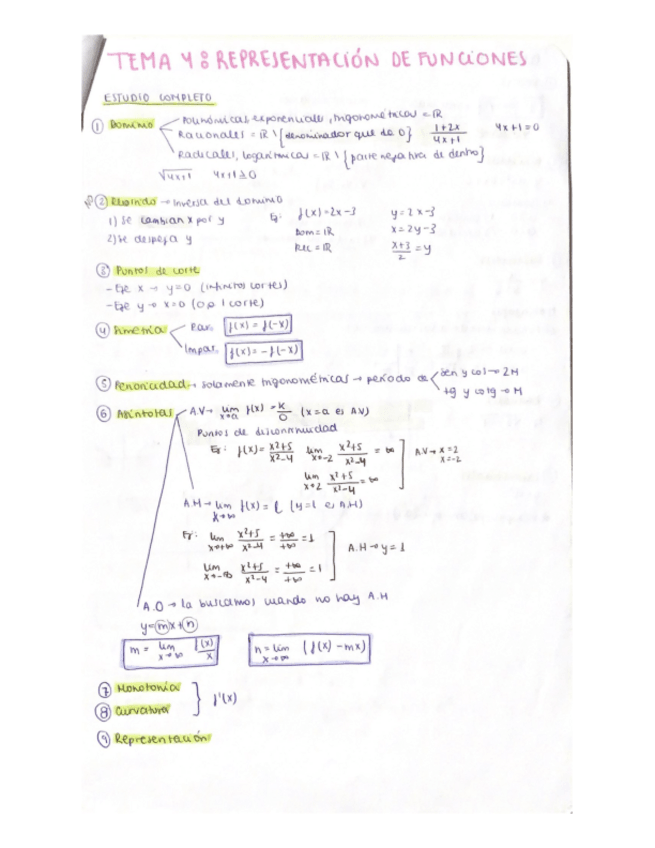 TEMA 4: REPRESENTACIÓN DE FUNCIONES
ESTUDIO COMPLETO
① Dominio
Polinómicas, exponenciales, trigonométricas = ℝ
Racionales = ℝ \ {denominador que da 0} (1+2x)/(4x+1) 4x+1=0
Radicales, logarítmicas = ℝ \ {parte negativa de dentro}
√4x+1 4x+1≥0
② Recorrido → Inversa del dominio
1) Se cambian x por y
2) Se despeja y
Ej: f(x)=2x-3 y=2x-3
Dom=ℝ x=2y-3
Rec=ℝ (x+3)/2=y
③ Puntos de corte
- Eje x → y=0 (infinitos cortes)
- Eje y → x=0 (0 o 1 corte)
④ Simetría
Par: f(x)=f(-x)
Impar: f(x)=-f(-x)
⑤ Periodicidad → solamente trigonométricas → período de
sen y cos → 2π
tg y cotg → π
⑥ Asíntotas
A.V → lim x→a f(x)=K/0 (x=a es AV)
Puntos de discontinuidad
Ej: f(x)=(x²+5)/(x²-4) lim x→-2 (x²+5)/(x²-4) = ∞
lim x→2 (x²+5)/(x²-4) = ∞
A.V → x=2
x=-2
A.H → lim x→∞ f(x)=l (y=l es A.H)
Ej: lim x→+∞ (x²+5)/(x²-4) = +∞/+∞ = 1
lim x→-∞ (x²+5)/(x²-4) = +∞/+∞ = 1
A.H → y=1
A.O → la buscamos cuando no hay A.H
y=mx+n
m = lim x→∞ f(x)/x
n = lim x→∞ (f(x)-mx)
⑦ Monotonía
⑧ Curvatura
f'(x)
⑨ Representación